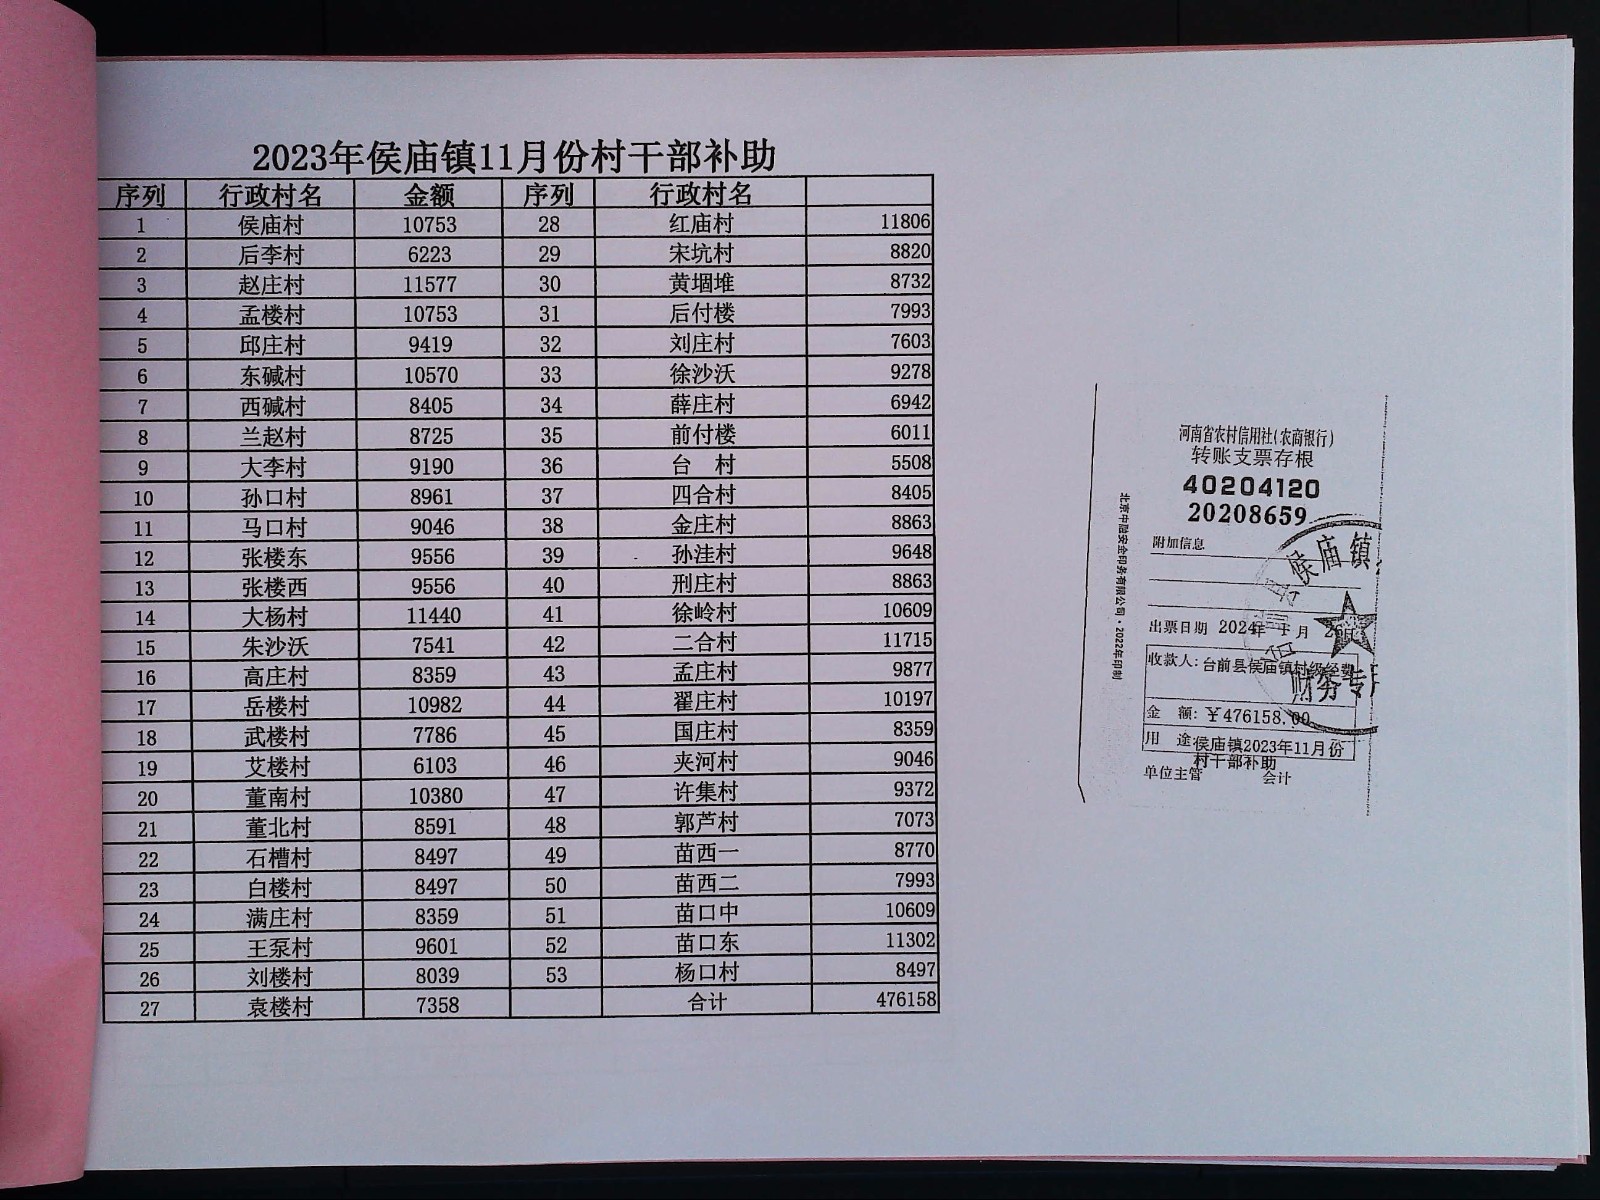 2023年侯庙镇11月份村干部补助
序列 行政村名 金额 序列 行政村名
1 侯庙村 10753 28 红庙村 11806
2 后李村 6223 29 宋坑村 8820
3 赵庄村 11577 30 黄堌堆 8732
4 孟楼村 10753 31 后付楼 7993
5 邱庄村 9419 32 刘庄村 7603
6 东碱村 10570 33 徐沙沃 9278
7 西碱村 8405 34 薛庄村 6942
8 兰赵村 8725 35 前付楼 6011
9 大李村 9190 36 台 村 5508
10 孙口村 8961 37 四合村 8405
11 马口村 9046 38 金庄村 8863
12 张楼东 9556 39 孙洼村 9648
13 张楼西 9556 40 刑庄村 8863
14 大杨村 11440 41 徐岭村 10609
15 朱沙沃 7541 42 二合村 11715
16 高庄村 8359 43 孟庄村 9877
17 岳楼村 10982 44 翟庄村 10197
18 武楼村 7786 45 国庄村 8359
19 艾楼村 6103 46 夹河村 9046
20 董南村 10380 47 许集村 9372
21 董北村 8591 48 郭芦村 7073
22 石槽村 8497 49 苗西一 8770
23 白楼村 8497 50 苗西二 7993
24 满庄村 8359 51 苗口中 10609
25 王泵村 9601 52 苗口东 11302
26 刘楼村 8039 53 杨口村 8497
27 袁楼村 7358 合计 476158
河南省农村信用社(农商银行)
转账支票存根
40204120
20208659
附加信息
出票日期 2024年 1月
收款人:台前县侯庙镇村级经费
金 额:￥476158.00
用 途:侯庙镇2023年11月份
村干部补助
单位主管 会计
北京中融安全印务有限公司·2022年印制
侯庙镇
财务专用